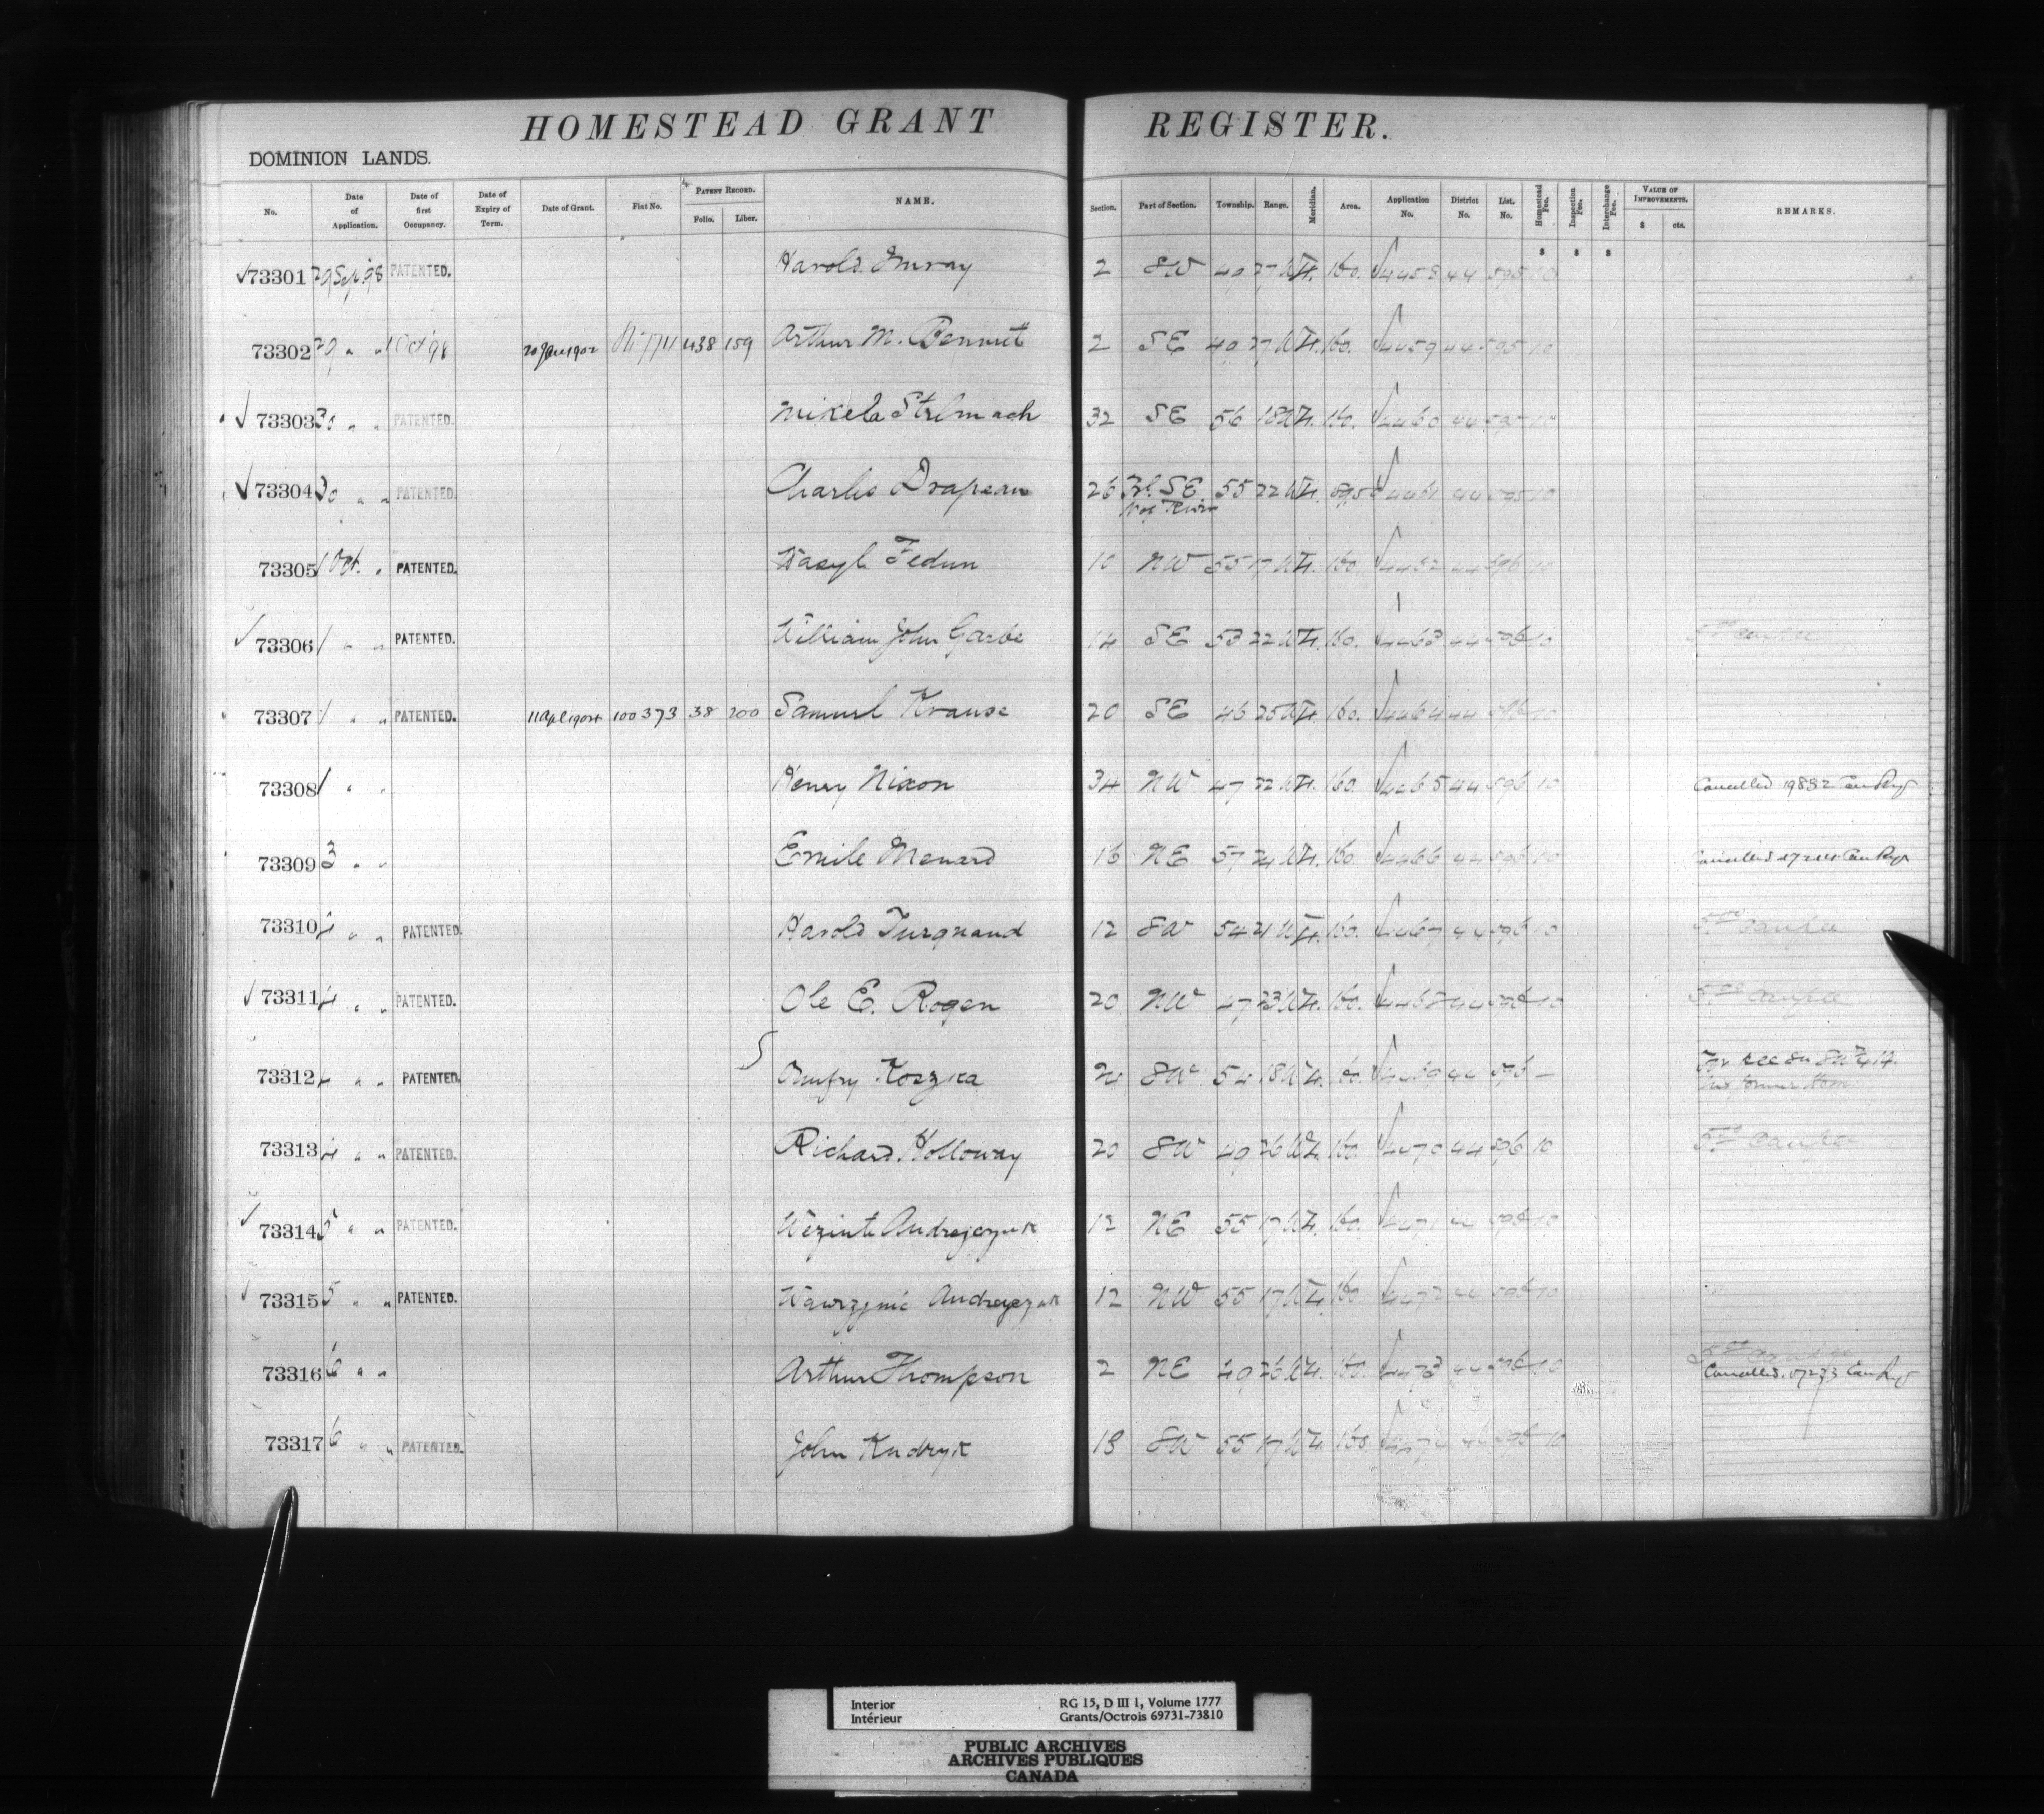 HOMESTEAD GRANT REGISTER.
DOMINION LANDS.
No. Date of Application. Date of first Occupancy. Date of Expiry of Term. Date of Grant. Fiat No. PATENT RECORD. Folio. Liber. NAME. Section. Part of Section. Township. Range. Meridian. Area. Application No. District No. List. No. Homestead Fee. Inspection Fee. Interchange Fee. VALUE OF IMPROVEMENTS. $ cts. REMARKS.
73301 29 Sep '98 PATENTED. Harold Imray 2 SW 49 27 W4. 160. 4458 44 595 10
73302 29 " " 1 Oct 98 20 Jan 1902 438 159 Arthur M. Bennett 2 SE 49 27 W4. 160. 4459 44 595 10
73303 30 " " PATENTED. Mikela Strlmach 32 SE 56 18 W4. 160. 4460 44 595 10
73304 30 " " PATENTED. Charles Drapeau 26 Frl. SE 55 22 W4. 4461 44 595 10
N of River
73305 1 Oct. " PATENTED. Wasyl Fedun 10 NW 55 17 W4. 160 4462 44 596 10
73306 1 " " PATENTED. William John Garbe 14 SE 53 22 W4. 160. 4463 44 596 10
73307 1 " " PATENTED. 11 Apl 1904 100373 38 200 Samuel Krause 20 SE 46 25 W4. 160. 4464 44 596 10
73308 1 " " Henry Nixon 34 NW 47 22 W4. 160. 4465 44 596 10 Cancelled 19832 Can Reg
73309 3 " " Emile Menard 16 NE 57 24 W4. 160. 4466 44 596 10 Cancelled Can Reg
73310 4 " " PATENTED. Harold Turquand 12 SW 54 21 W4. 160. 4467 44 596 10
73311 4 " " PATENTED. Ole E. Rogen 20 NW 47 23 W4. 160. 4468 44 596 10
73312 4 " " PATENTED. Onufry Koszka 24 SW 54 18 W4. 160. 4469 44 596 —
his former Hom
73313 4 " " PATENTED. Richard Holloway 20 SW 49 26 W4. 160 4470 44 596 10
73314 5 " " PATENTED. Andrejczuk 12 NE 55 17 W4. 160. 4471 44 596 10
73315 5 " " PATENTED. Wawrzynic Andrejczuk 12 NW 55 17 W4. 160. 4472 44 596 10
73316 6 " " Arthur Thompson 2 NE 49 26 W4. 160. 4473 44 596 10
Cancelled. Can Reg
73317 6 " " PATENTED. John Kudryk 18 SW 55 17 W4. 160. 4474 44 596 10
Interior RG 15, D III 1, Volume 1777
Intérieur Grants/Octrois 69731-73810
PUBLIC ARCHIVES
ARCHIVES PUBLIQUES
CANADA